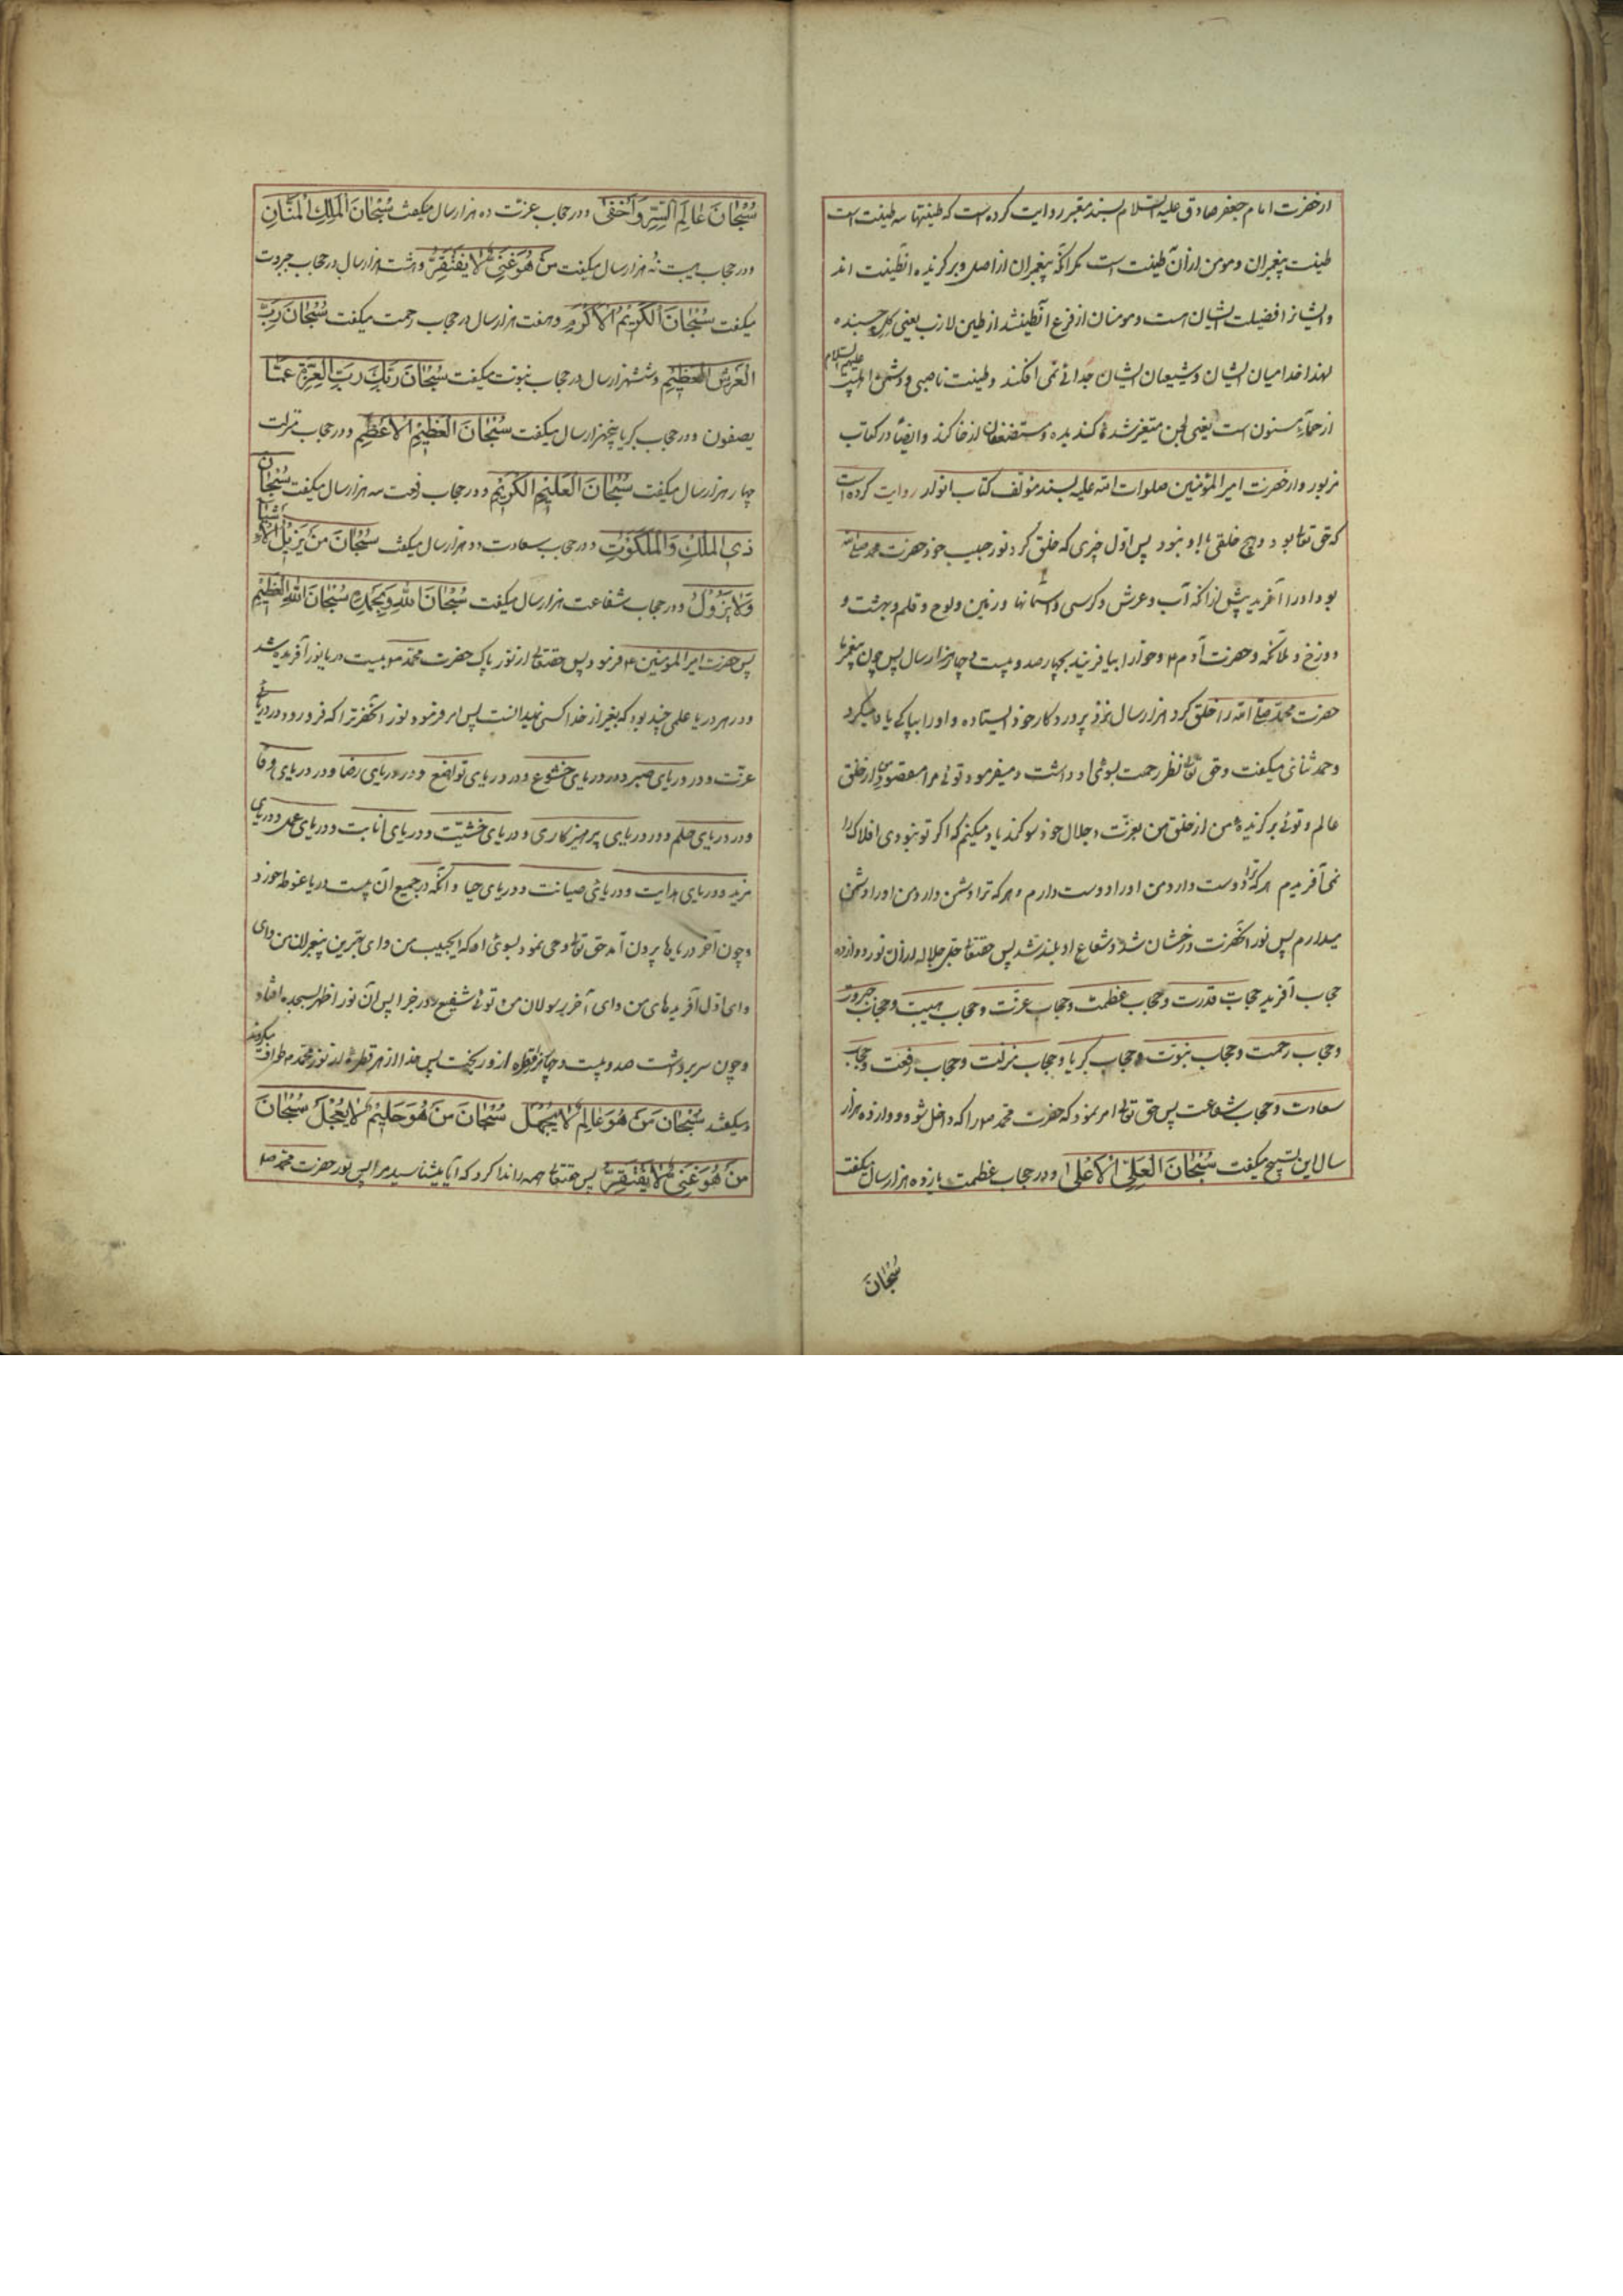 از حضرت امام جعفر صادق علیه السلام بسند معتبر روایت کرده است که طینتها سه طینت است
طینت پیغمبران و مومن از آن طینت است مگر آنکه پیغمبران از اصل و برگزیده آنطینت اند
و ایشانرا فضیلت ایشان است و مومنان از فرع آنطینتند از طین لازب یعنی گل چسبنده
لهذا خدا میان ایشان و شیعیان ایشان جدائے نمی افکند و طینت ناصبی و دشمن اهلبیت علیهم السلام
از حمأ مسنون است یعنی لجن متغیر شده گندیده و مستضعفان از خاکند و ایضا در کتاب
مزبور و از حضرت امیر المؤمنین صلوات الله علیه بسند مؤلف کتاب انوار روایت کرده است
که حق تعالی بود و هیچ خلقی با او نبود پس اول چیزی که خلق کرد نور حبیب خود حضرت محمد صلی الله
بود او را آفرید پیش از آنکه آب و عرش و کرسی و آسمانها و زمین و لوح و قلم و بهشت و
دوزخ و ملائکه و حضرت آدم ع و حوا را بیافریند بچهار صد و بیست و چهار هزار سال پس چون پیغمبر ما
حضرت محمد صلی الله را خلق کرد هزار سال نزد پروردگار خود ایستاده و او را بپاکے یاد میکرد
و حمد ثنائی میگفت و حق تعالی نظر رحمت بسوی او داشت و میفرمود توئے مرا مقصود من از خلق
عالم و توئے برگزیدهٔ من از خلق من بعزت و جلال خود سوگند یاد میکنم که اگر تو نبودی افلاک را
نمی آفریدم هر که ترا دوست دارد من او را دوست دارم و هر که ترا دشمن دارد من او را دشمن
میدارم پس نور آنحضرت درخشان شد و شعاع او بلند شد پس حقتعالی جل جلاله از آن نور دوازده
حجاب آفرید حجاب قدرت و حجاب عظمت و حجاب عزت و حجاب هیبت و حجاب جبروت
و حجاب رحمت و حجاب نبوت و حجاب کبریا و حجاب منزلت و حجاب رفعت و حجاب
سعادت و حجاب شفاعت پس حق تعالی امر نمود که حضرت محمد ص را که داخل شو و دوازده هزار
سال این تسبیح میگفت سُبْحَانَ الْعَلِيِّ الْأَعْلَى و در حجاب عظمت یازده هزار سال میگفت
سُبْحَانَ
سُبْحَانَ عَالِمِ السِّرِّ وَأَخْفَى و در حجاب عزت ده هزار سال میگفت سُبْحَانَ الْمَلِكِ الْمَنَّانِ
و در حجاب هیبت نه هزار سال میگفت مَنْ هُوَ غَنِيٌّ لَا يَفْتَقِرُ و هشت هزار سال در حجاب جبروت
میگفت سُبْحَانَ الْكَرِيمُ الْأَكْرَمِ و هفت هزار سال در حجاب رحمت میگفت سُبْحَانَ رَبِّ
الْعَرْشِ الْعَظِيمِ و ششهزار سال در حجاب نبوت میگفت سُبْحَانَ رَبِّكَ رَبِّ الْعِزَّةِ عَمَّا
یصفون و در حجاب کبریا پنجهزار سال میگفت سُبْحَانَ الْعَظِيمِ الْأَعْظَمِ و در حجاب منزلت
چهار هزار سال میگفت سُبْحَانَ الْعَلِيمِ الْكَرِيمِ و در حجاب رفعت سه هزار سال میگفت سُبْحَانَ
ذِي الْمُلْكِ وَالْمَلَكُوتِ و در حجاب سعادت دو هزار سال میگفت سُبْحَانَ مَنْ يُزِيلُ الْأَشْيَاءَ
وَلَا يَزُولُ و در حجاب شفاعت هزار سال میگفت سُبْحَانَ اللهِ وَبِحَمْدِهِ سُبْحَانَ اللهِ الْعَظِيمِ
پس حضرت امیر المؤمنین ع فرمود پس حقتعالی از نور پاک حضرت محمد ص بیست دریا نور آفریده شد
و در هر دریا علمی چند بود که بغیر از خدا کسی نمیدانست پس امر فرمود نور آنحضرترا که فرو رود در دریائے
عزت و در دریای صبر و در دریای خشوع و در دریای تواضع و در دریای رضا و در دریای وفا
و در دریای حلم و در دریایی پرهیزکاری و دریای خشیت و دریای انابت و دریای عمل و دریای
مزید و دریای هدایت و دریائی صیانت و دریای حیا و آنکه در جمیع آن بیست دریا غوطه خورد
و چون آخر دریاها بیرون آمد حق تعالی وحی نمود بسوی او که ایحبیب من و ای بهترین پیغمبران من و ای
و ای اول آفریدهای من و ای آخر رسولان من توئے شفیع روز جزا پس آن نور اطهر بسجده افتاد
و چون سر برداشت صد و بیست و چهار هزار قطره از او ریخت پس خدا از هر قطره از نور محمد ص طواف میکردند
و میگفتند سُبْحَانَ مَنْ هُوَ عَالِمٌ لَا يَجْهَلُ سُبْحَانَ مَنْ هُوَ حَلِيمٌ لَا يَعْجَلُ سُبْحَانَ
مَنْ هُوَ غَنِيٌّ لَا يَفْتَقِرُ پس حقتعالی همه را ندا کرد که آیا میشناسید مرا پس نور حضرت محمد ص